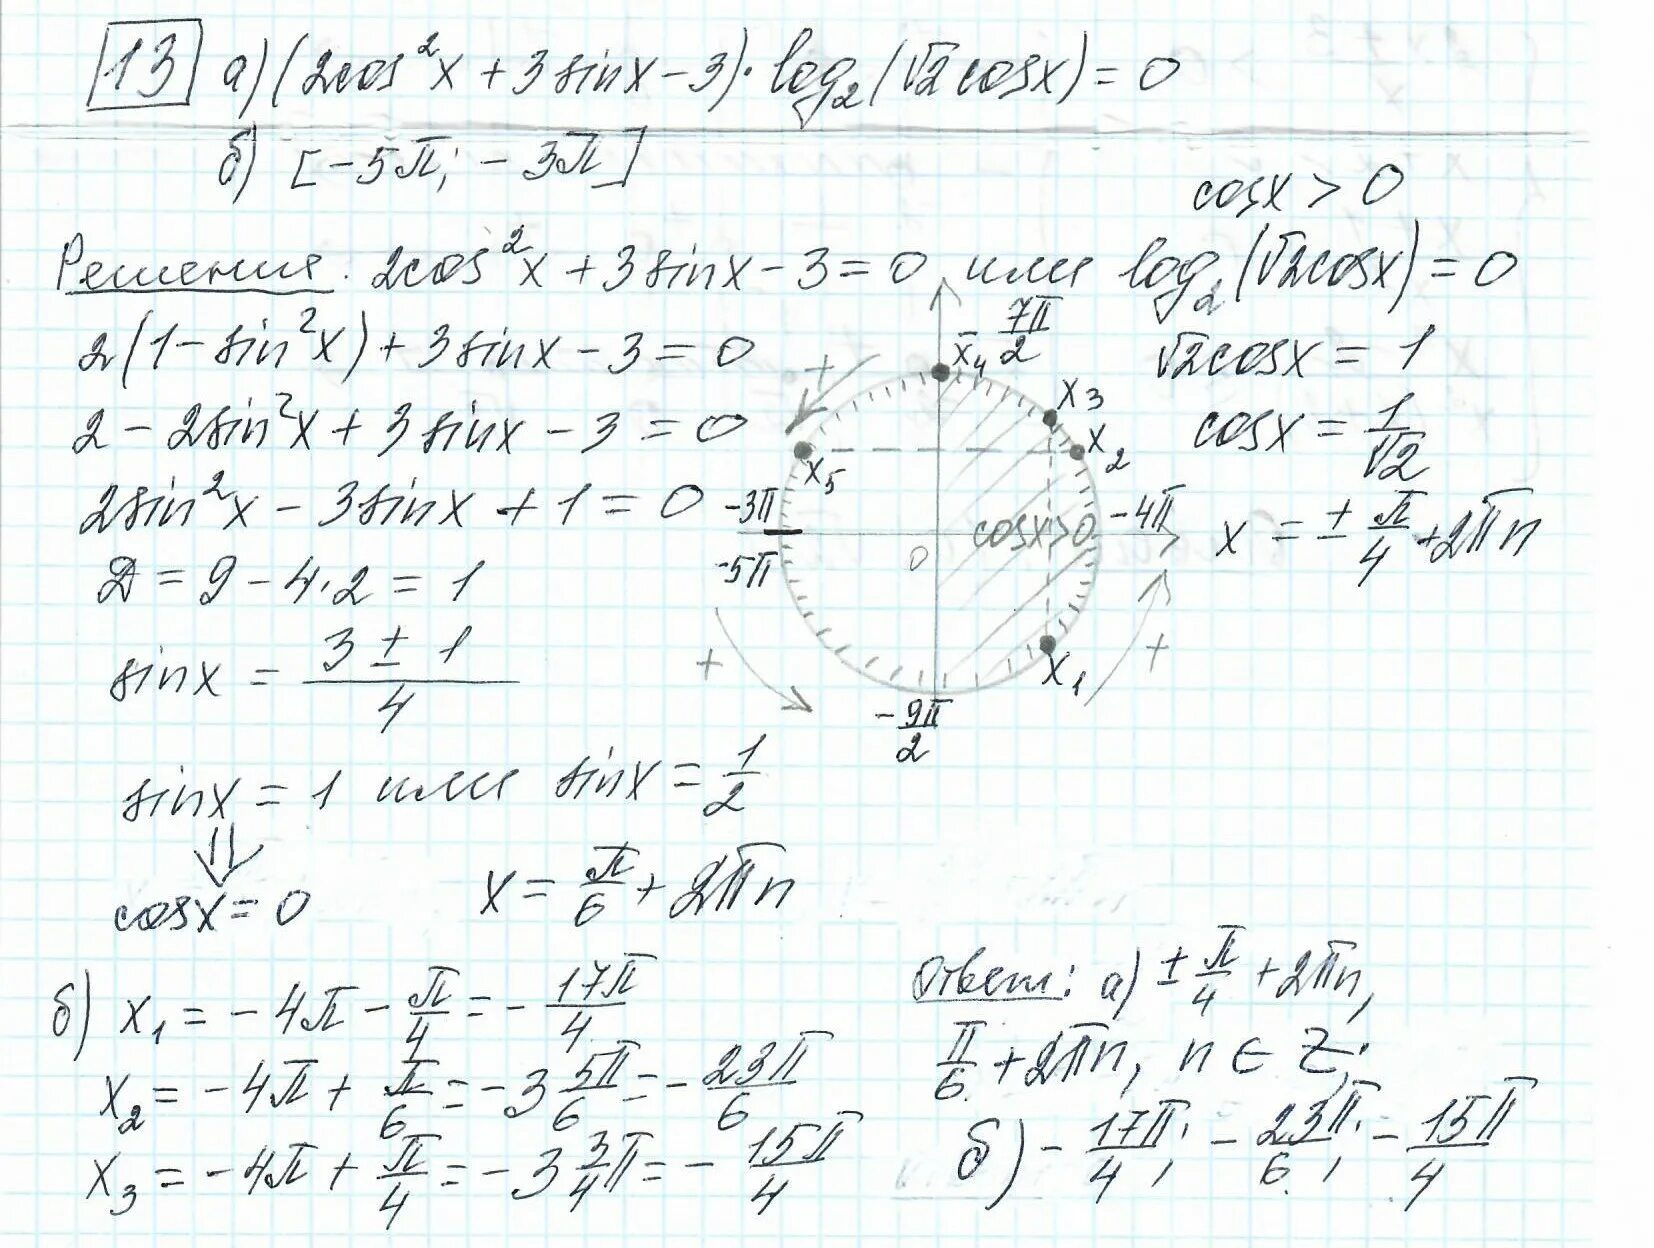 13 а) (2cos²x + 3sinx - 3)·log₂(√2cosx) = 0
б) [-5π; -3π]
cosx > 0
Решения. 2cos²x + 3sinx - 3 = 0 или log₂(√2cosx) = 0
2(1 - sin²x) + 3sinx - 3 = 0
2 - 2sin²x + 3sinx - 3 = 0
2sin²x - 3sinx + 1 = 0
D = 9 - 4·2 = 1
sinx = (3 ± 1)/4
sinx = 1 или sinx = 1/2
⇓
cosx = 0
x = π/6 + 2πn
√2cosx = 1
cosx = 1/√2
x = ± π/4 + 2πn
-7π/2
x₄
x₃
x₂
x₅
-3π
-5π
cosx>0
-4π
0
x₁
-9π/2
+
+
+
б) x₁ = -4π - π/4 = -17π/4
x₂ = -4π + π/6 = -3 5π/6 = -23π/6
x₃ = -4π + π/4 = -3 3/4π = -15π/4
Ответ: а) ± π/4 + 2πn,
π/6 + 2πn, n ∈ Z;
б) -17π/4; -23π/6; -15π/4